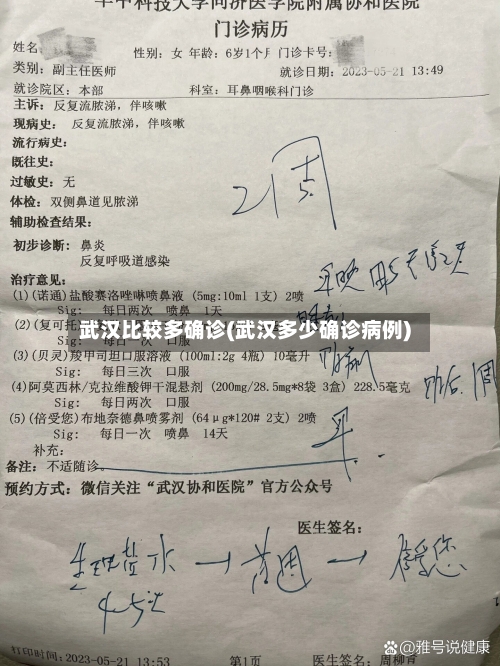 华中科技大学同济医学院附属协和医院
门诊病历
姓名
性别: 女 年龄: 6岁1个月 门诊卡号:
类别: 副主任医师
就诊日期: 2023-05-21 13:49
就诊院区: 本部
科室: 耳鼻咽喉科门诊
主诉: 反复流脓涕，伴咳嗽
现病史: 反复流脓涕，伴咳嗽
流行病史:
既往史:
过敏史: 无
体检: 双侧鼻道见脓涕
辅助检查结果:
初步诊断: 鼻炎
反复呼吸道感染
治疗意见:
(1)(诺通)盐酸赛洛唑啉喷鼻液 (5mg:10ml 1支) 2喷
Sig: 每日两次 喷鼻 1天
武汉比较多确诊(武汉多少确诊病例)
(2)(复可托
Sig: 每日 口服
(3)(贝灵)羧甲司坦口服溶液 (100ml:2g 4瓶) 10毫升
Sig: 每日三次 口服
(4)阿莫西林/克拉维酸钾干混悬剂 (200mg/28.5mg*8袋 3盒) 228.5毫克
Sig: 每日两次 口服
(5)(倍受您)布地奈德鼻喷雾剂 (64μg*120# 2支) 2喷
Sig: 每日一次 喷鼻 14天
补充:
备注: 不适随诊。
预约方式: 微信关注“武汉协和医院”官方公众号
医生签名:
生理盐水 →
医生签名: 周柳青
打印时间:2023-05-21 13:53
第1页
@雅号说健康